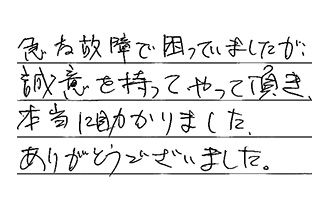 急な故障で困っていましたが、
誠意を持ってやって頂き、
本当に助かりました、
ありがとうございました。